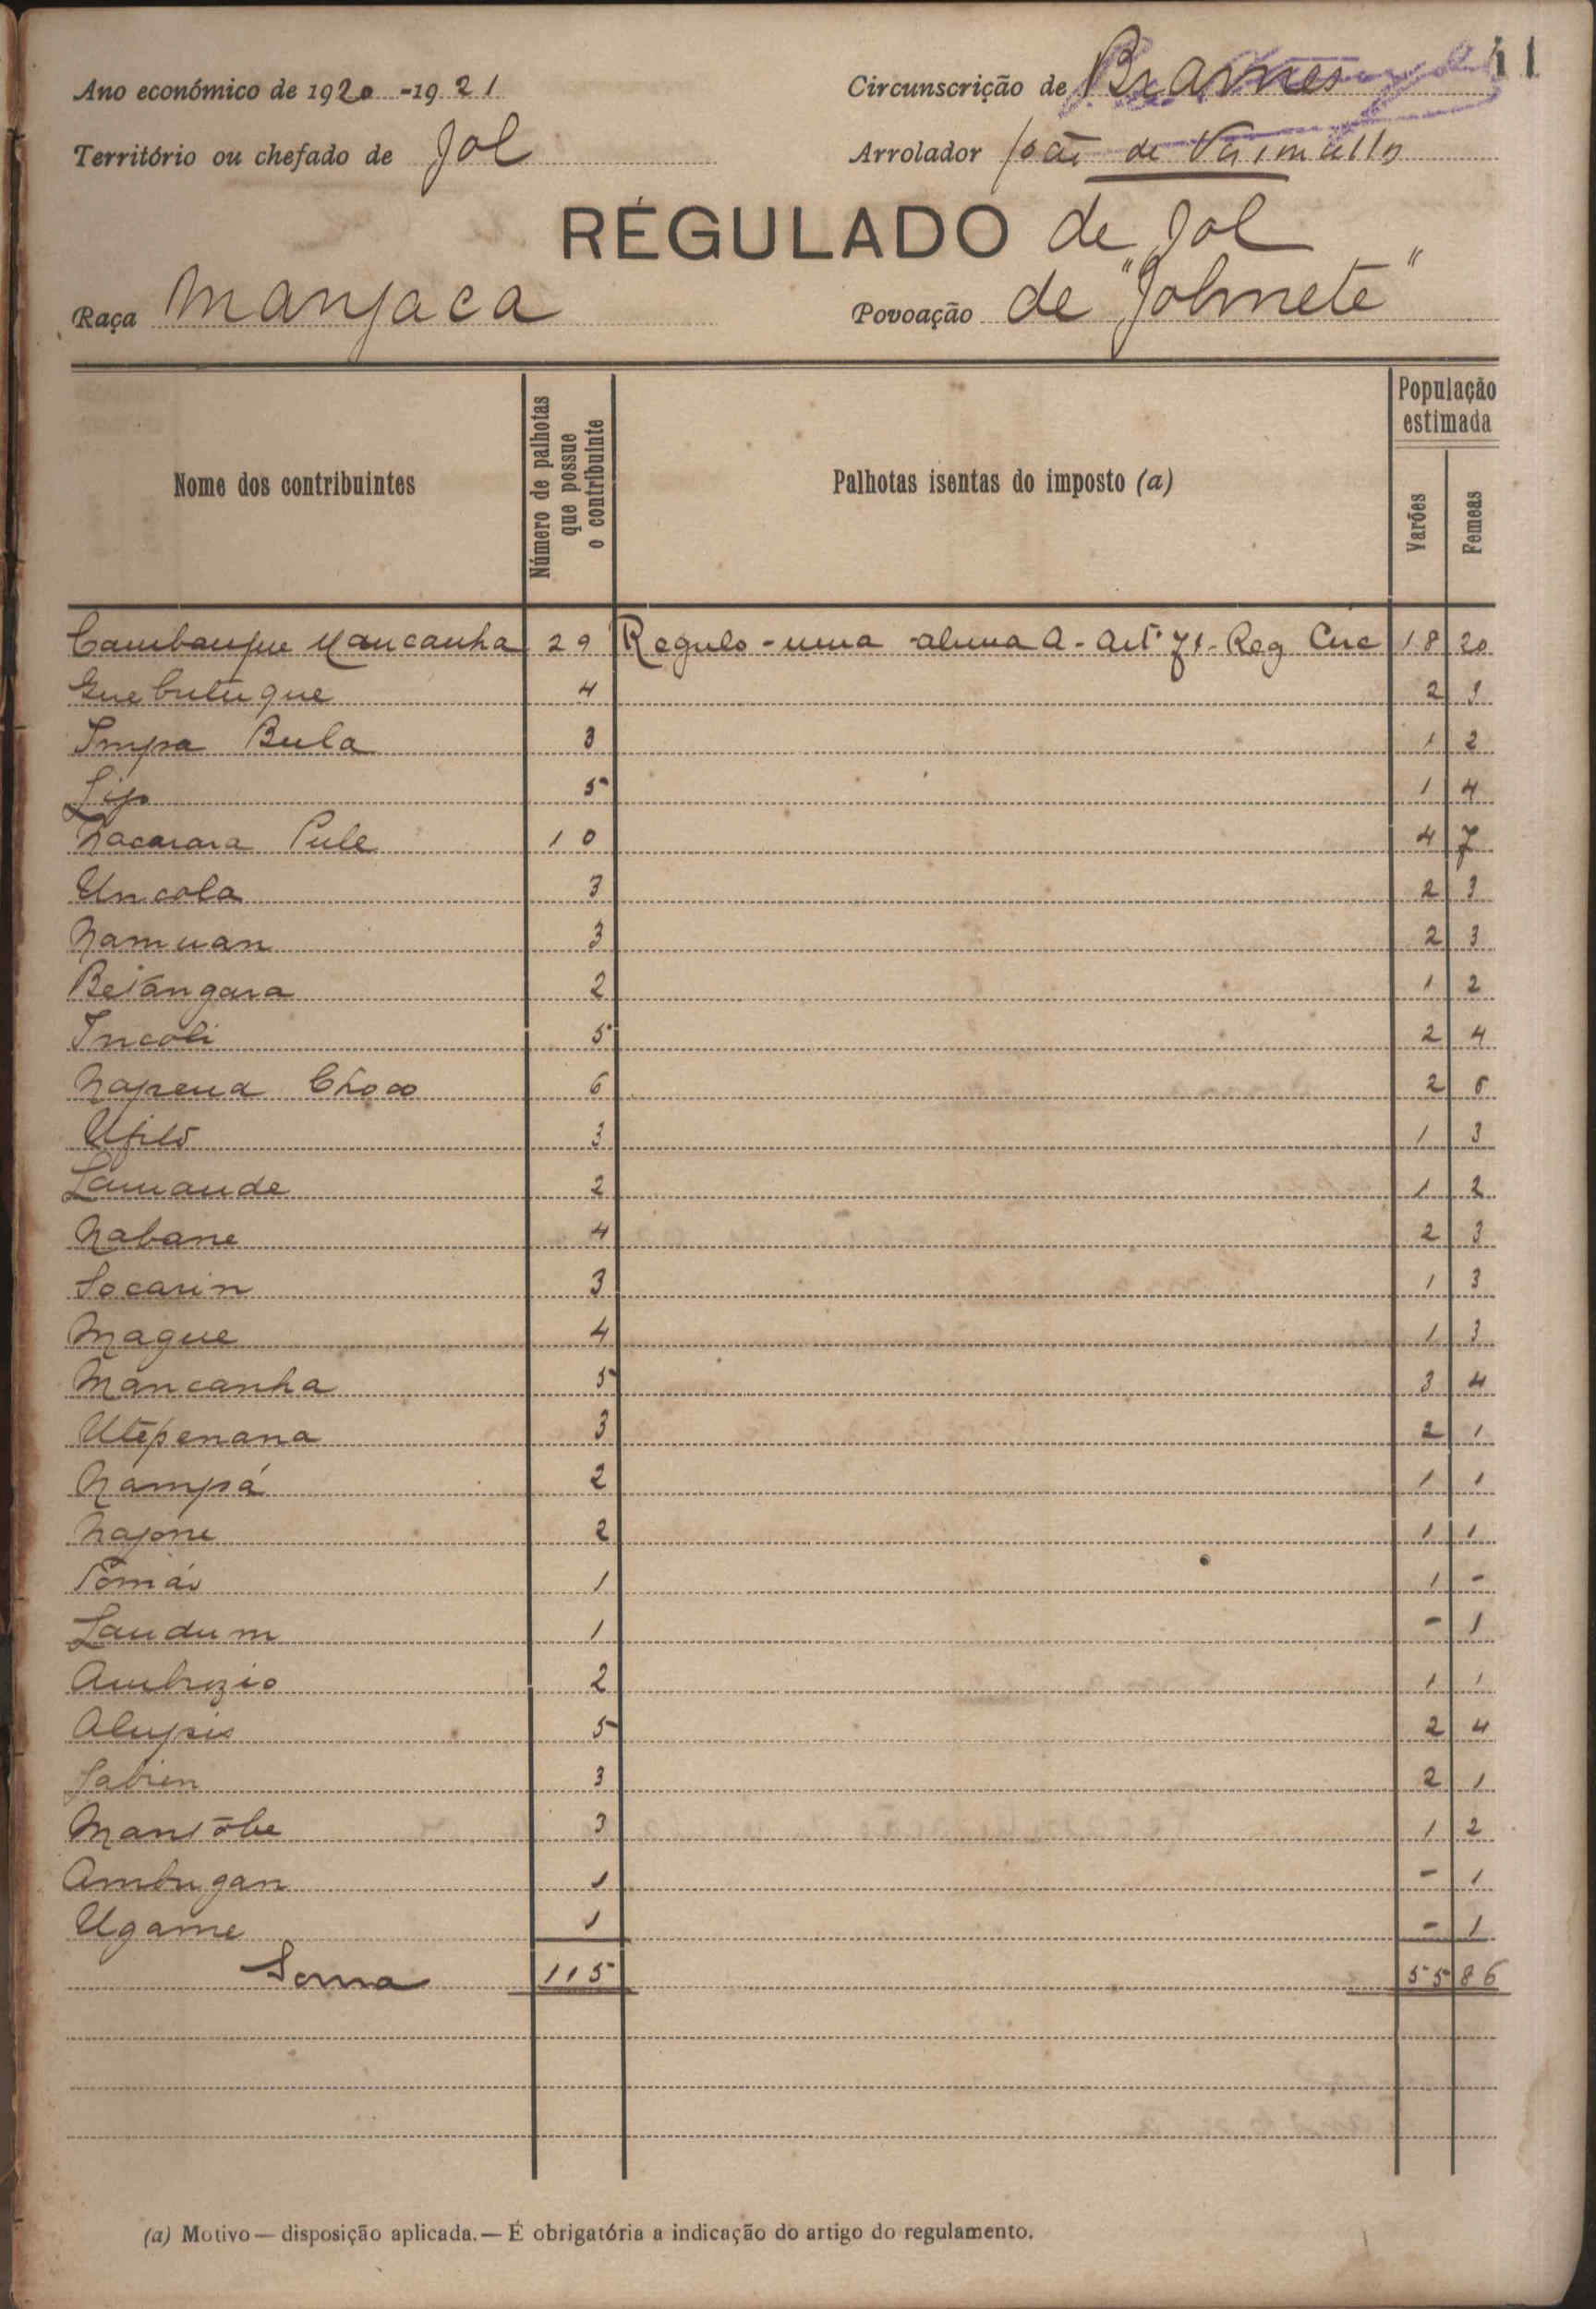 11
Ano económico de 1920-1921
Circunscrição de Brames
Território ou chefado de Jol
Arrolador João de
RÉGULADO de Jol
Raça Manjaca
Povoação de "Jolmete"
Nome dos contribuintes
Número de palhotas que possue o contribuinte
Palhotas isentas do imposto (a)
População estimada
Varões
Femeas
Mancanha 29 Regulo - uma alinea A - Artº 71 - Reg Circ 18 20
4 2
Impa Bula 3 1 2
5 1 4
Nacarara Pule 10 4 7
Uncola 3 2 3
Namuan 3 2 3
Betangara 2 1 2
Incoli 5 2 4
Napena Choco 6 2
3 1 3
Lamande 2 1 2
Nabane 4 2 3
Socarin 3 1 3
Mague 4 1 3
Mancanha 5 3 4
Utepenana 3 2 1
Nampá 2 1 1
2 1 1
Tomás 1 1 -
Landum 1 - 1
Ambrozio 2 1 1
5 2 4
3 2 1
3 1 2
Ambugan 1 - 1
Ugame 1 - 1
Soma 115 55 86
(a) Motivo — disposição aplicada. — É obrigatória a indicação do artigo do regulamento.